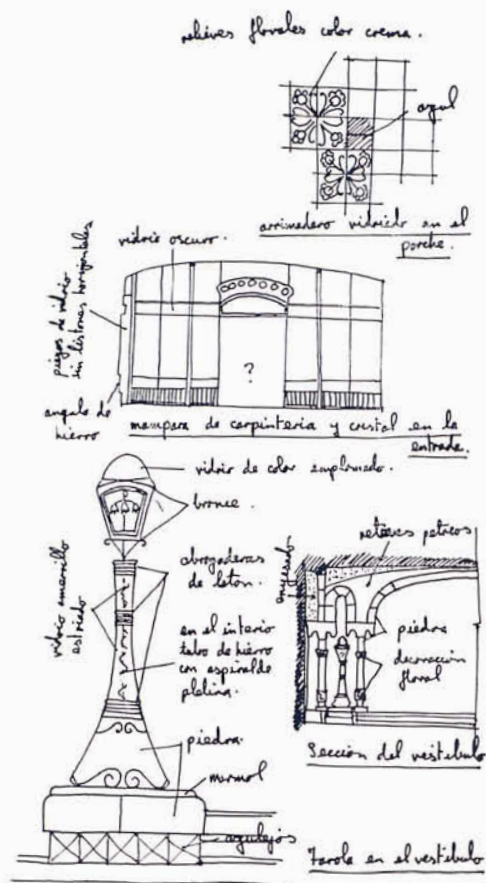 relieves florales color crema.
azul
arrimadero vidriado en el
porche.
vidrio oscuro.
piezas de vidrio
sin listones horizontales
?
angulo de
hierro
mampara de carpinteria y cristal en la
entrada.
vidrio de color emplomado.
bronce.
abrazaderas
de laton.
vidrio amarillo
estriado
en el interio
tubo de hierro
con espiral de
pletina.
piedra.
marmol
azulejos
enyesado
piedra
decoración
floral
Sección del vestibulo
Farola en el vestibulo